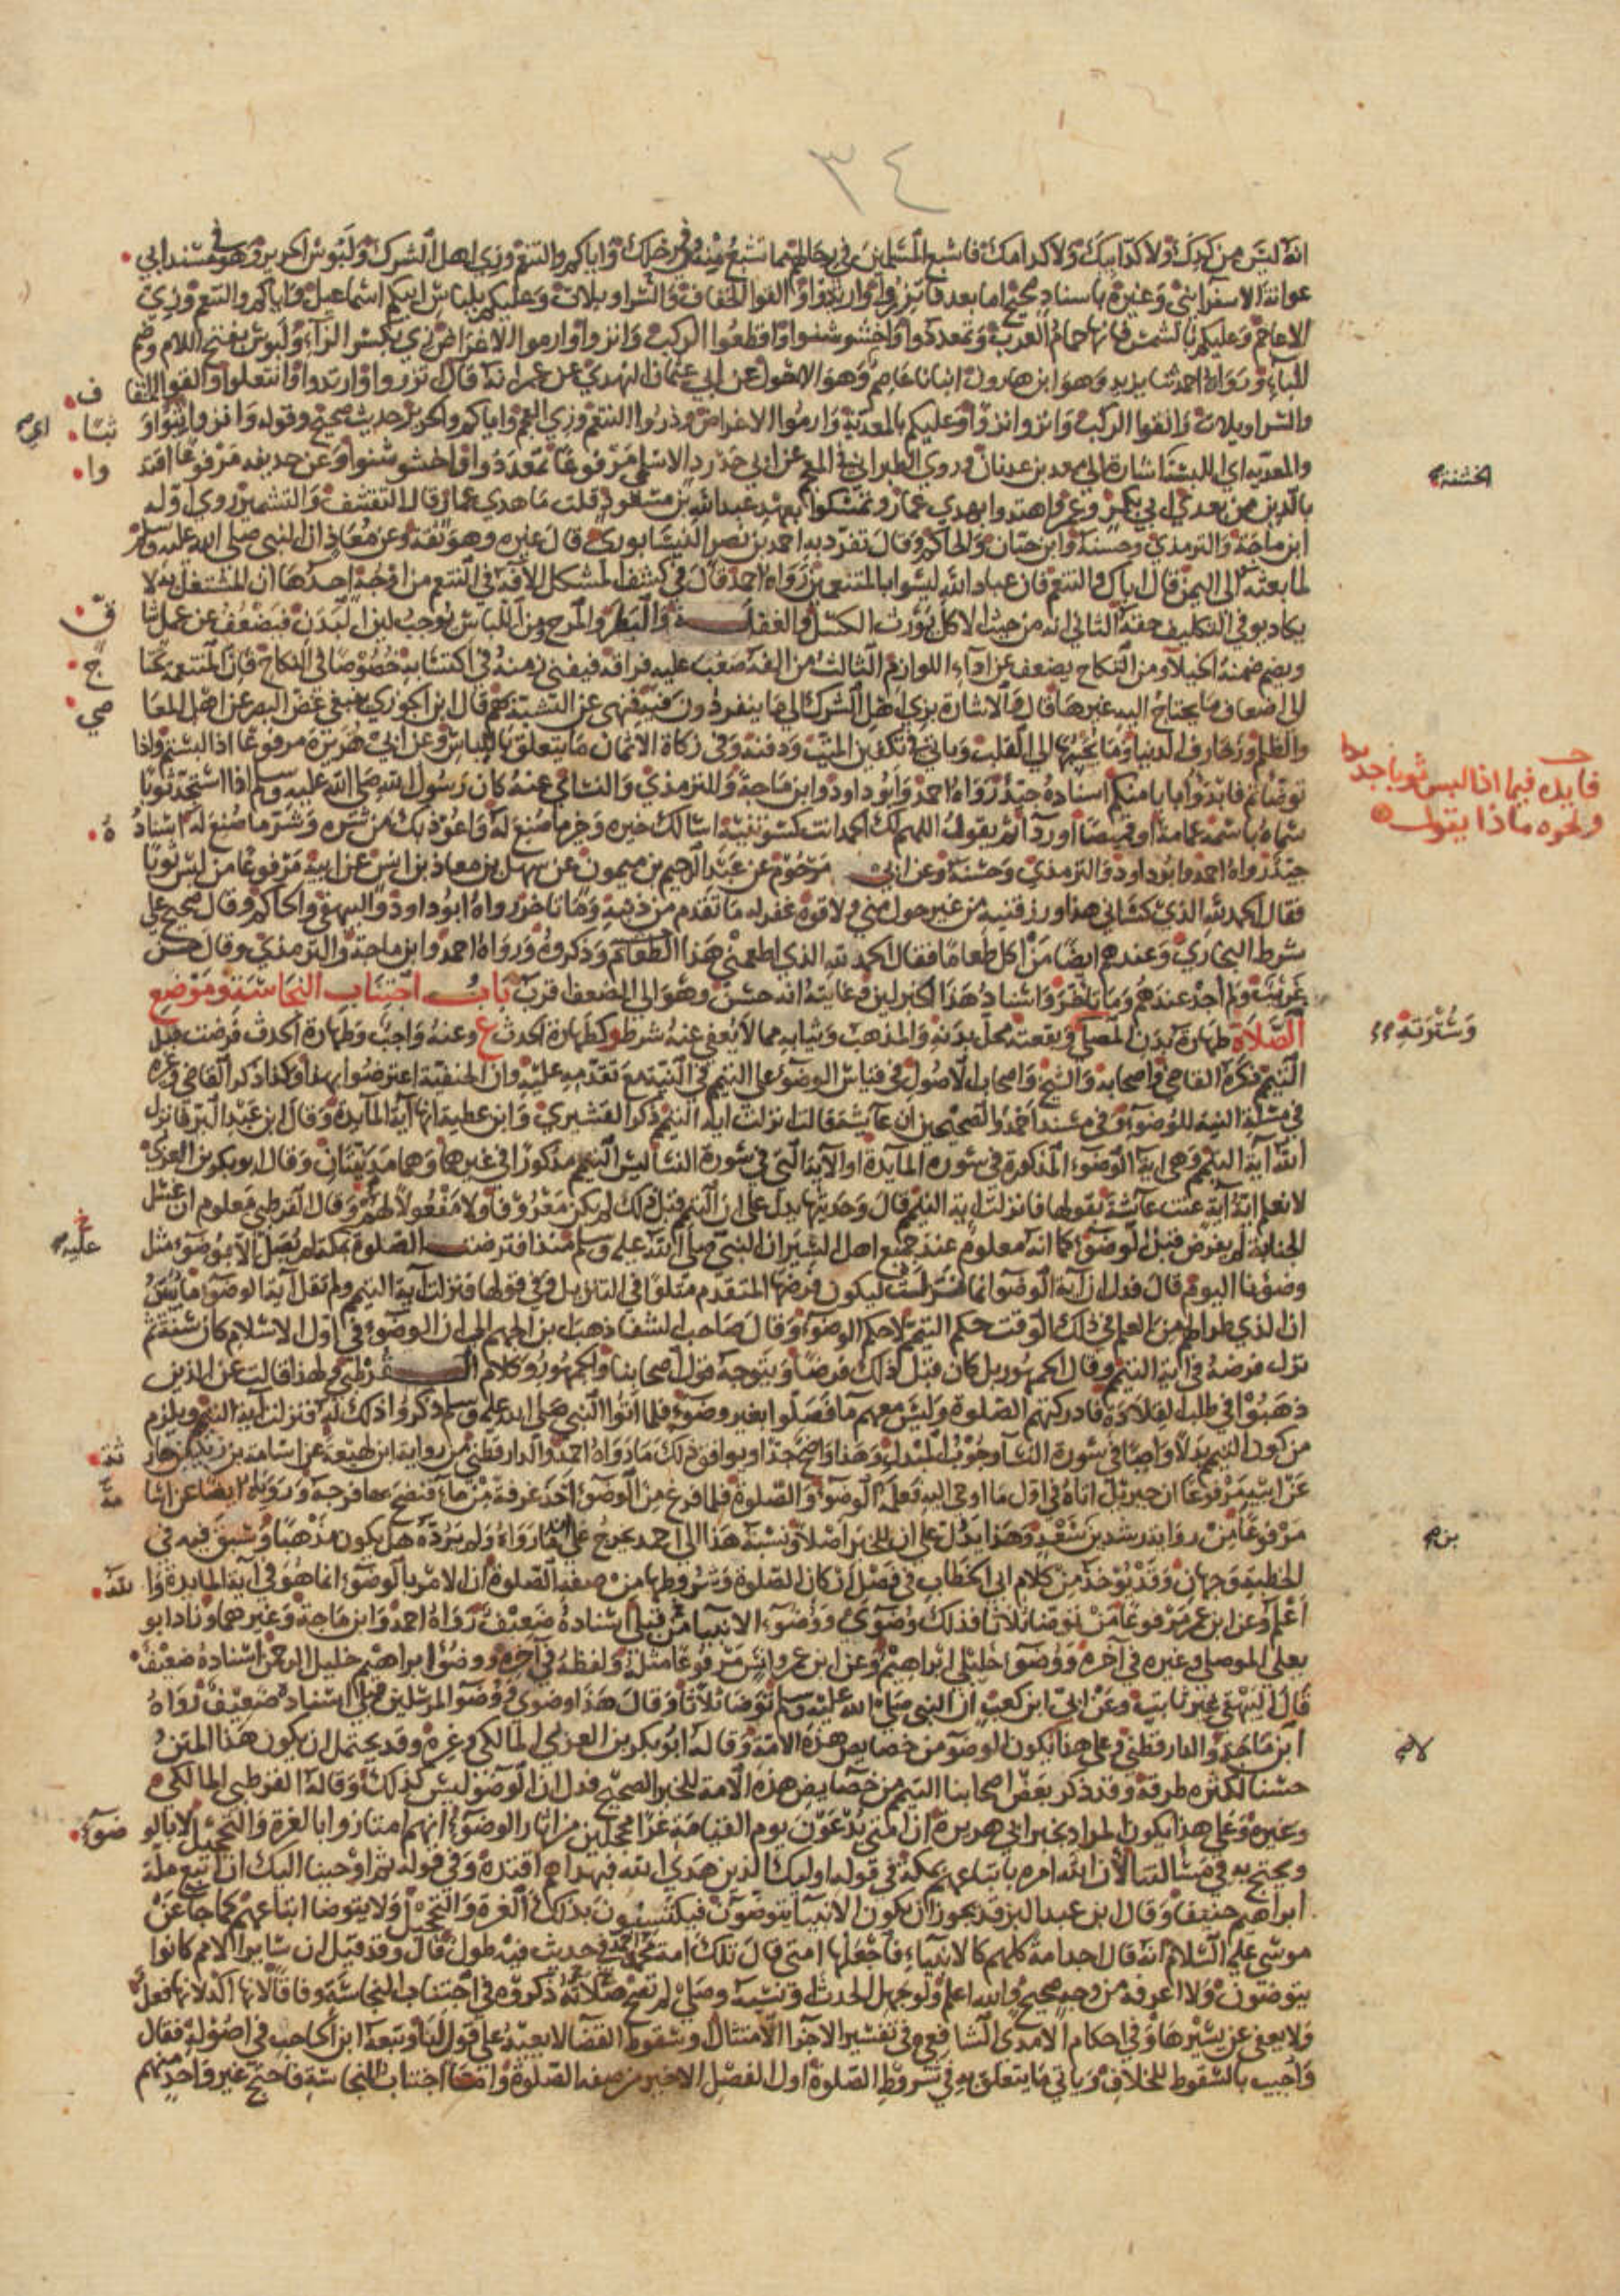 ٣٤
انه ليس من كدك ولا كد ابيك ولا كد امك فاشبع المسلمين في رحالهم مما تشبع منه في رحلك واياكم والتنعم وزي اهل الشرك ولبوس الحرير وهو في مسند ابي
عوانة الاسفرايني وغيره باسناد صحيح اما بعد فاتزروا وارتدوا والقوا الخفاف والسراويلات وعليكم بلباس ابيكم اسماعيل واياكم والتنعم وزي
الاعاجم وعليكم بالشمس فانها حمام العرب وتمعددوا واخشوشنوا واقطعوا الركب وانزوا وارموا الاغراض زي بكسر الزاء ولبوس بفتح اللام وضم
الباء ورواه احمد ثنا يزيد وهو ابن هارون انبانا عاصم وهو الاحول عن ابي عثمان النهدي عن عمر انه قال تزروا وارتدوا وانتعلوا والقوا الخفا ف
والسراويلات والقوا الركب وانزوا وعليكم بالمعدية وارموا الاغراض وذروا التنعم وزي العجم واياكم والحرير حديث صحيح وقوله وانزوا اي ثبوا و ثبا
والمعديه اي اللبسة الخشنة اشارة الى معد بن عدنان وروى الطبراني في المعجم عن ابي حدرد الاسلمي مرفوعا تمعددوا واخشوشنوا وعن حذيفه مرفوعا اقتد وا
بالذين من بعدي ابي بكر وعمر واهتدوا بهدي عمار وتمسكوا بعهد عبد الله بن مسعود قلت ما هدي عمار قال التقشف والتشمير روى اوله
ابن ماجة والترمذي وحسنه وابن حبان والحاكم وقال تفرد به احمد بن نصر النيسابوري قال غيره وهو ثقة وعن معاذ ان النبي صلى الله عليه وسلم
لما بعثه الى اليمن قال اياك والتنعم فان عباد الله ليسوا بالمتنعمين رواه احمد قال في كشف المشكل الآفة في التنعم من اوجه احدها ان المشتغل به لا
يكاد يوفي التكليف حقه الثاني انه من حيث الاكل يورث الكسل والغفلة والبطر والمرح ومن اللباس يوجب لين البدن فيضعف عن عمل شا ق
ويضم ضمنه الخيلاء ومن النكاح يضعف عن اداء اللوازم الثالث من الفه صعب عليه فراقه فيفني زمنه في اكتسابه خصوصا في النكاح فان المتنعمة تحتا ج
الى اضعاف ما يحتاج اليه غيرها قال والاشارة بزي اهل الشرك الى ما ينفردون به فنهى عن التشبه بهم قال ابن الجوزي ينبغي غض البصر عن اهل المعا صي
والظلم وزخارف الدنيا وما يحببها الى القلب وياتي في تكفين الميت ودفنه وفي زكاة الاثمان ما يتعلق باللباس وعن ابي هريرة مرفوعا اذا لبستم واذا
توضاتم فابدؤا بايامنكم اسناده جيد رواه احمد وابو داود وابن ماجة وللترمذي والنسائي عنه كان رسول الله صلى الله عليه وسلم اذا استجد ثوبا
سماه باسمه عمامة او قميصا او رداء ثم يقول اللهم لك الحمد انت كسوتنيه اسالك خيره وخير ما صنع له واعوذ بك من شره وشر ما صنع له اسناد ه
جيد رواه احمد وابو داود والترمذي وحسنه وعن ابي مرحوم عن عبد الرحيم بن ميمون عن سهل بن معاذ بن انس عن ابيه مرفوعا من لبس ثوبا
فقال الحمد لله الذي كساني هذا ورزقنيه من غير حول مني ولا قوة غفر له ما تقدم من ذنبه وما تاخر رواه ابو داود والبيهقي والحاكم وقال صحيح على
شرط البخاري وعندهم ايضا من اكل طعاما فقال الحمد لله الذي اطعمني هذا الطعام وذكروه ورواه احمد وابن ماجة والترمذي وقال حسن
غريب ولم اجد عندهم وما تاخر واسناد هذا الخبر لين وغايته انه حسن وهو الى الضعف اقرب باب اجتناب النجاسة وموضع
الصلاة طهارة بدن المصلي وبقعته محل بدنه والمذهب وثيابه مما لا يعفى عنه شرط و كطهارة الحدث ع وعنه واجب وطهارة الحدث فرضت قبل
التيمم ذكره القاضي واصحابه والشيخ واصحاب الاصول في قياس الوضوء على التيمم في النية مع تقدمه عليه وان الحنفية اعترضوا بهذا وكذا ذكر القاضي وغيره
في مسئلة النية للوضوء وفي مسند احمد والصحيحين ان عايشة قالت نزلت اية التيمم ذكر القشيري وابن عطية انها آية المائدة وقال ابن عبد البر فانزل
الله آية التيمم وهي اية الوضوء المذكورة في سورة المايدة او الآية التي في سورة النسا ليس التيمم مذكورا في غيرها وهما مدنيتان وقال ابو بكر بن العربي
لا نعلم اية آية عنت عايشة بقولها فانزلت اية التيمم قال وحديثها يدل على ان التيمم قبل ذلك لم يكن معروفا ولا مفعولا لهم وقال القرطبي معلوم ان غسل
الجنابة لم يفرض قبل الوضوء كما انه معلوم عند جميع اهل السير ان النبي صلى الله عليه وسلم منذ افترضت عليه الصلوة بمكة لم يصل الا بوضوء مثل
وضؤنا اليوم قال فدل ان آية الوضوء انما نزلت ليكون فرضها المتقدم متلوا في التنزيل وفي قولها فنزلت آية التيمم ولم تقل آية الوضوء ما يبين
ان الذي طرا لهم من العلم في ذلك الوقت حكم التيمم لا حكم الوضوء وقال صاحب الشفا ذهب ابن الجهم الى ان الوضوء في اول الاسلام كان سنة ثم
نزل فرضه في آية التيمم وقال الجمهور بل كان قبل ذلك فرضا ويتوجه قول اصحابنا والجمهور وكلام القرطبي ولهذا قالت عن الذين
ذهبوا في طلب القلادة فادركتهم الصلوة وليس معهم ما فصلوا بغير وضوء فلما اتوا النبي صلى الله عليه وسلم ذكروا ذلك له فنزلت آية التيمم ويلزم
من كون التيمم بدلا واجبا في سورة النسا وجوب المبدل وهذا واضح جدا ويوافق ذلك ما رواه احمد والدارقطني من رواية ابن لهيعة عن اسامة بن زيد بن حار ثة
عن ابيه مرفوعا ان جبريل اتاه في اول ما اوحي اليه فعلمه الوضوء والصلوة فلما فرغ من الوضوء اخذ غرفة من ماء فنضح بها فرجه وروياه ايضا عن اسا مة
مرفوعا من رواية رشدين بن سعد وهذا يدل على ان للخبر اصلا ونسبة هذا الى احمد يخرج على ما رواه ولم يرده هل يكون مذهبا وسبق فيه في
الخطبة وجهان وقد يوخذ من كلام ابي الخطاب في فصل اركان الصلوة وشروطها من صفة الصلوة ان الامر بالوضوء انما هو في آية المايدة وا لله
اعلم وعن ابن عمر مرفوعا من توضا ثلاثا فذلك وضوءي ووضوء الانبيا من قبلي اسناده ضعيف رواه احمد وابن ماجة وغيرهما وزاد ابو
يعلى الموصلي وغيره في آخره ووضوء خليلي ابراهيم وعن ابن عمر وانس مرفوعا مثله ولفظه في آخره ووضؤ ابراهيم خليل الرحمن اسناده ضعيف
قال البيهقي غير ثابت وعن ابي ابن كعب ان النبي صلى الله عليه وسلم توضا ثلاثا وقال هذا وضوي ووضوء المرسلين قبلي اسناد ضعيف رواه
ابن ماجة والدارقطني وعلى هذا لا يكون الوضوء من خصايص هذه الامة وقاله ابو بكر بن العربي المالكي وغيره وقد يحتمل ان يكون هذا المتن
حسنا لكثره طرقه وقد ذكر بعض اصحابنا التيمم من خصايص هذه الامة للخبر الصحيح فدل ان الوضوء ليس كذلك وقاله القرطبي المالكي
وغيره وعلى هذا يكون المراد بخبر ابي هريرة ان امتي يدعون يوم القيامة غرا محجلين من اثار الوضوء انهم امتازوا بالغرة والتحجيل لا بالو ضوء
ويحتج به في مسالتنا لان الله امره باتباعهم بمكة في قوله اوليك الذين هدى الله فبهداهم اقتده وفي قوله ثم اوحينا اليك ان اتبع ملة
ابراهيم حنيفا وقال ابن عبد البر قد يجوز ان يكون الانبيا يتوضون فيكتسبون بذلك الغرة والتحجيل ولا يتوضا اتباعهم كما جا عن
موسى عليه السلام انه قال اجد امة كلهم كالانبياء فاجعلها امتي قال تلك امة محمد في حديث فيه طول قال وقد قيل ان سائر الامم كانوا
يتوضئون ولا اعرفه من وجه صحيح والله اعلم ولو جهل الحدث او نسيه وصلى لم تصح صلاته ذكروه في اجتناب النجاسة وفاقا لانها اكد لانها فعل
ولا يعفى عن يسيرها وفي احكام الامدي الشافعي في تفسير الاجزا الامتثال وسقوط القضا لا يعيد على قول لنا وتبعه ابن الحاجب في اصوله فقال
واجيب بالسقوط للخلاف وياتي ما يتعلق به في شروط الصلوة اول الفصل الاخير من صفة الصلوة وامـا اجتناب النجاسة فاحتج غير واحد منهم
الخشنة
فايده فيما اذا لبس ثوبا جديدا
ونحوه ماذا يقول
وسترته
عليه
بن
لا